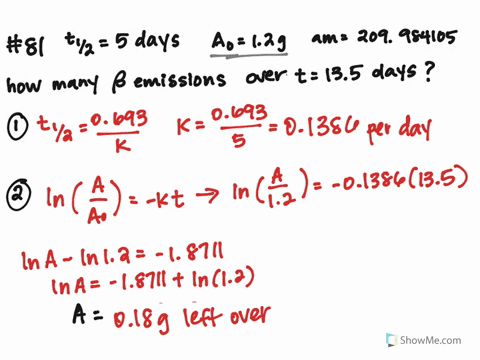 #81 t1/2 = 5 days A₀ = 1.2g am = 209.984105
how many β emissions over t = 13.5 days?
① t1/2 = 0.693/K K = 0.693/5 = 0.1386 per day
② ln(A/A₀) = -Kt → ln(A/1.2) = -0.1386(13.5)
ln A - ln 1.2 = -1.8711
ln A = -1.8711 + ln(1.2)
A = 0.18g left over
ShowMe.com